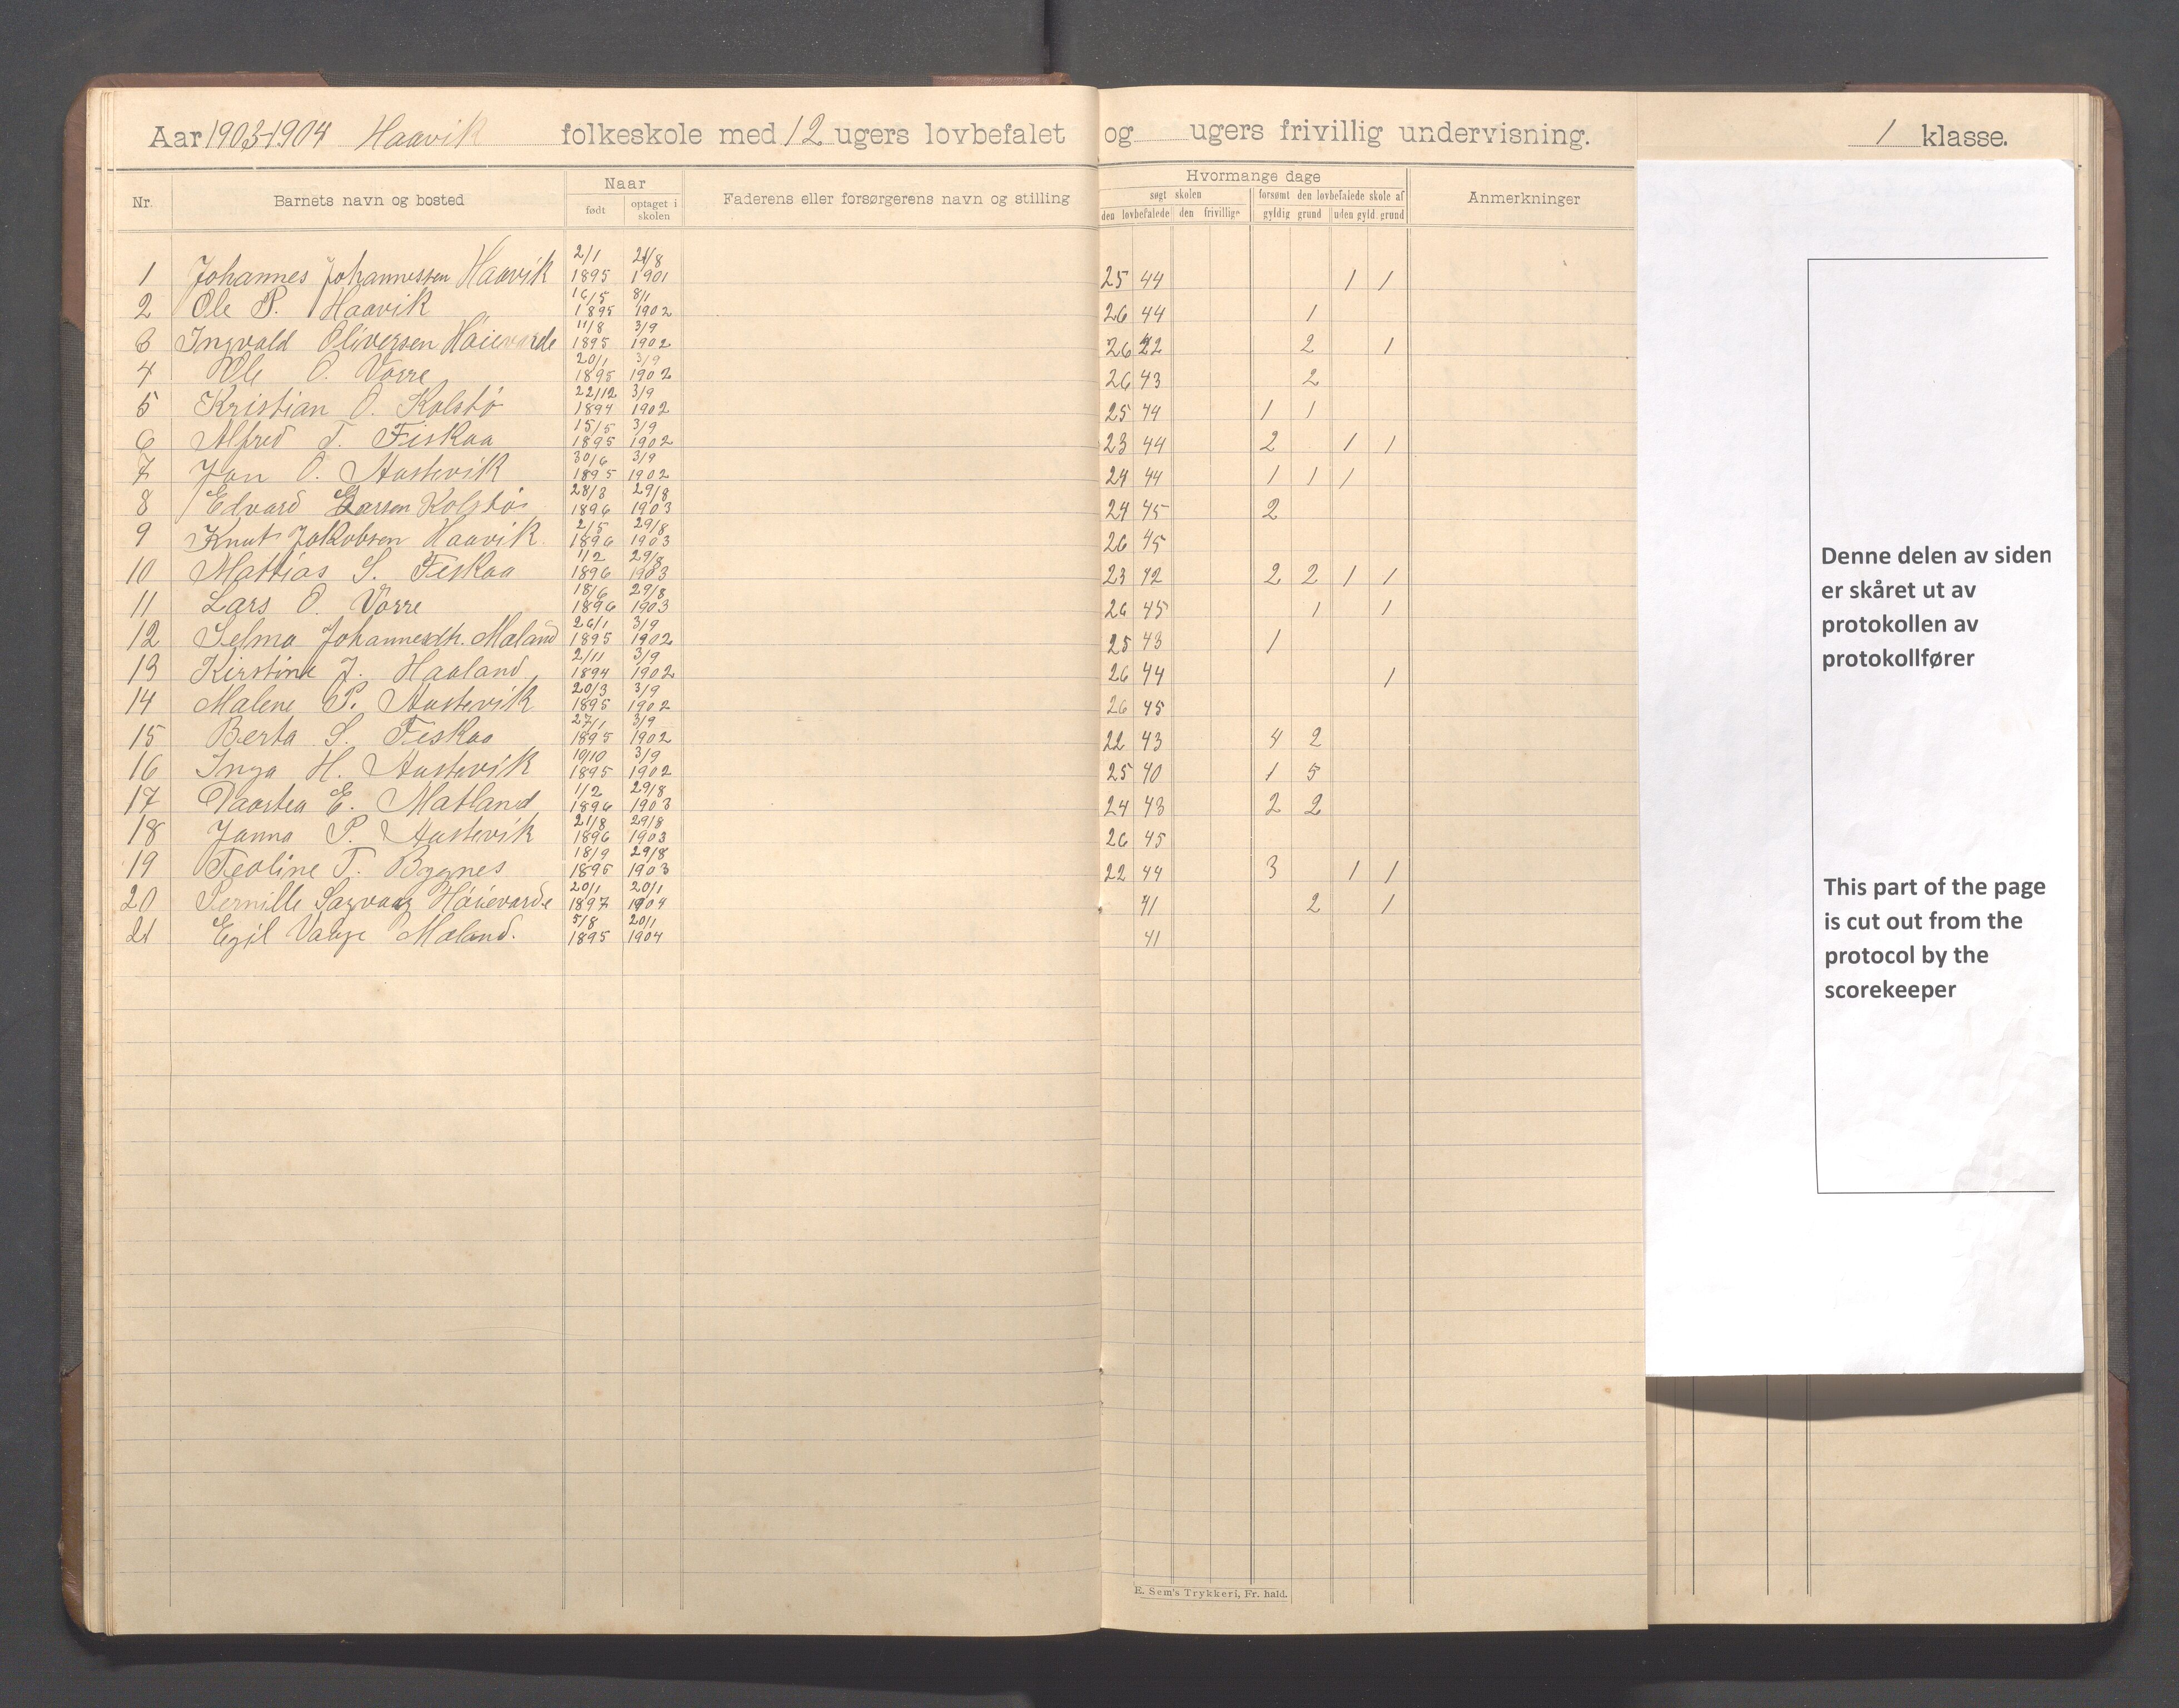 Aar 1903-1904 Haavik folkeskole med 12 ugers lovbefalet og ugers frivillig undervisning. 1 klasse.
Nr. Barnets navn og bosted Naar født optaget i skolen Faderens eller forsørgerens navn og stilling Hvormange dage søgt skolen den lovbefalede den frivillige forsømt den lovbefalede skole af gyldig grund uden gyld. grund Anmerkninger
1 Johannes Johannessen Haavik 2/1 1895 21/8 1901 25 44 1 1
2 Ole P. Haavik 16/5 1895 8/1 1902 26 44 1
3 Ingvald Oliversen Høievarde 11/8 1895 3/9 1902 26 22 2 1
4 Ole O. Vorre 20/1 1895 3/9 1902 26 43 2
5 Kristian O. Kolstø 22/12 1894 3/9 1902 25 44 1 1
6 Alfred T. Fiskaa 15/5 1895 3/9 1902 23 44 2 1 1
7 Jon O. Austevik 30/6 1895 3/9 1902 24 44 1 1 1
8 Edvard Larsen Kolstø 28/3 1896 29/8 1903 24 45 2
9 Knut Jakobsen Haavik 2/5 1896 29/8 1903 26 45
10 Mattias S. Fiskaa 1/2 1896 29/8 1903 23 42 2 2 1 1
11 Lars O. Vorre 18/6 1896 29/8 1903 26 45 1 1
12 Selma Johannesdtr. Maland 26/1 1895 3/9 1902 25 43 1
13 Kirstine J. Haaland 2/11 1894 3/9 1902 26 44 1
14 Malene P. Austevik 20/3 1895 3/9 1902 26 45
15 Berta S. Fiskaa 27/1 1895 3/9 1902 22 43 4 2
16 Inga H. Austevik 10/10 1895 3/9 1902 25 40 1 5
17 E. Matland 1/2 1896 29/8 1903 24 43 2 2
18 Janna P. Austevik 21/8 1896 29/8 1903 26 45
19 Teoline T. Bygnes 18/9 1895 29/8 1903 22 44 3 1 1
20 Pernille Høievarde 20/1 1897 20/1 1904 41 2 1
21 Egil Vaage Maland. 5/8 1895 20/1 1904 41
E. Sem's Trykkeri, Fr. hald.
Denne delen av siden
er skåret ut av
protokollen av
protokollfører
This part of the page
is cut out from the
protocol by the
scorekeeper